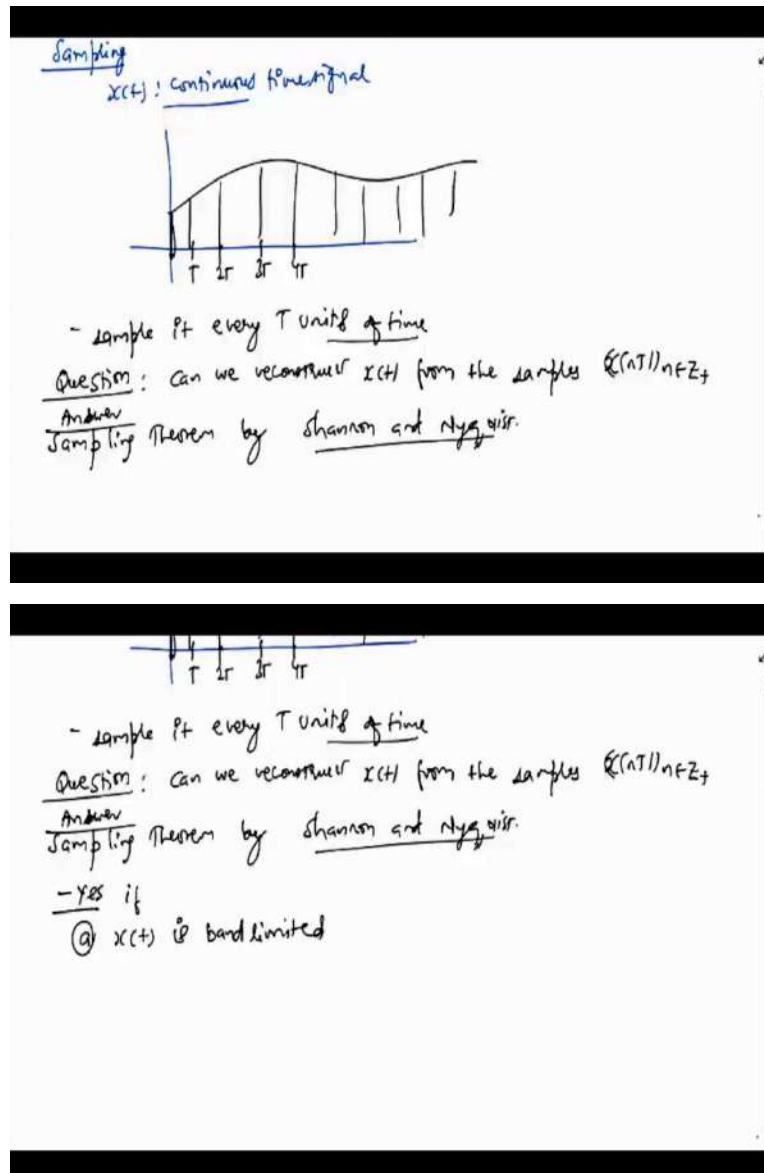 Sampling
x(t) : continuous time signal
T 2T 3T 4T
- sample it every T units of time
Question : Can we reconstruct x(t) from the samples (x(nT))n∈Z+
Answer
Sampling Theorem by Shannon and Nyquist.
T 2T 3T 4T
- sample it every T units of time
Question : Can we reconstruct x(t) from the samples (x(nT))n∈Z+
Answer
Sampling Theorem by Shannon and Nyquist.
- Yes if
(a) x(t) is band limited